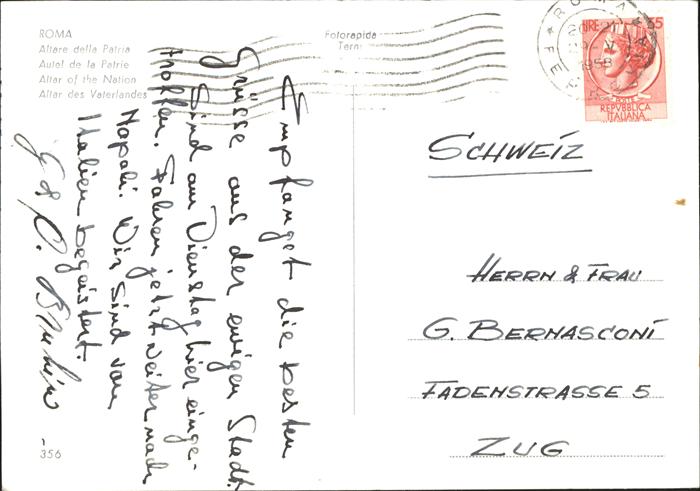 ROMA
Altare della Patria
Autel de la Patrie
Altar of the Nation
Altar des Vaterlandes
Fotorapida
Terni
ROMA
1958
LIRE 35
POSTE
REPVBBLICA
ITALIANA
Empfanget die besten
Grüsse aus der ewigen Stadt.
Sind am Dienstag hier einge-
troffen. Fahren jetzt weiter nach
Napoli. Wir sind von
Italien begeistert.
SCHWEIZ
HERRN & FRAU
G. BERNASCONI
FADENSTRASSE 5
ZUG
356